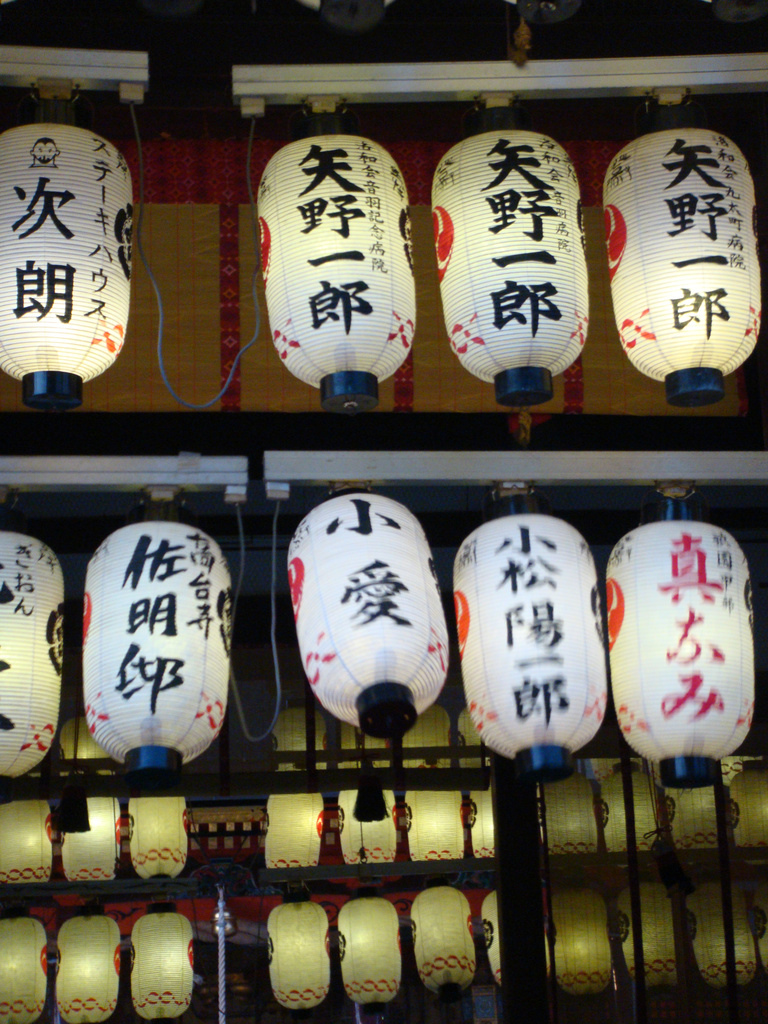 ステーキハウス
次朗
洛和会音羽記念病院
矢野一郎
洛和会音羽病院
矢野一郎
洛和会丸太町病院
矢野一郎
ぎおん
高台寺
佐明邸
小愛
小松陽一郎
祇園甲部
真なみ